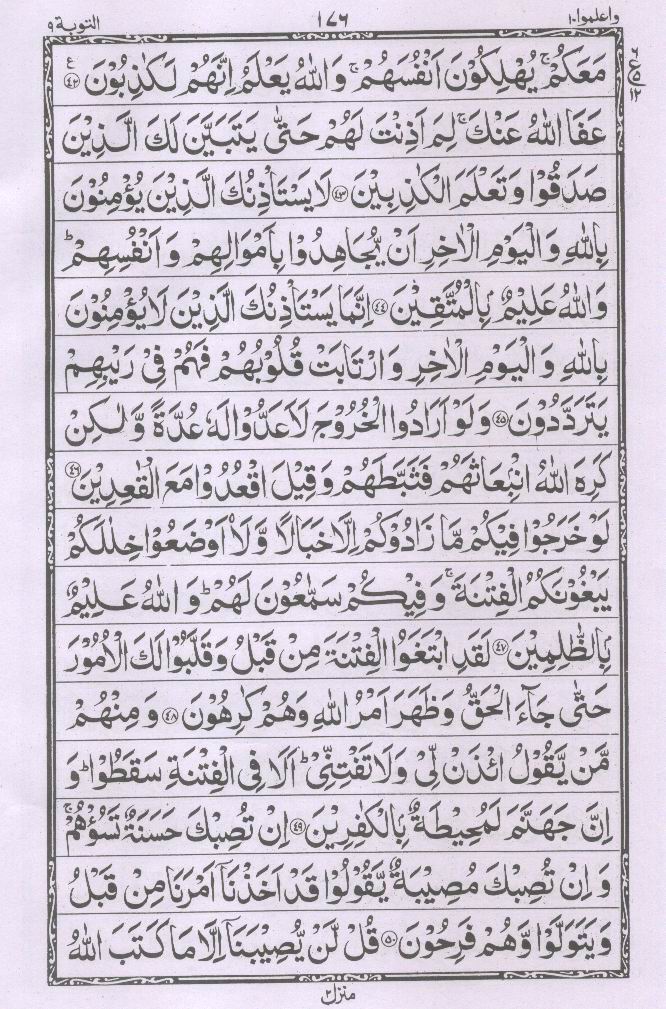 واعلموا ١٠ ١٧٦ التوبة ٩
مَعَكُمْ ۚ يُهْلِكُوْنَ اَنْفُسَهُمْ ۚ وَاللّٰهُ يَعْلَمُ اِنَّهُمْ لَكٰذِبُوْنَ ﴿٤٢﴾ ع
ع ٦ ٥ ١٢
عَفَا اللّٰهُ عَنْكَ ۚ لِمَ اَذِنْتَ لَهُمْ حَتّٰى يَتَبَيَّنَ لَكَ الَّذِيْنَ
صَدَقُوْا وَتَعْلَمَ الْكٰذِبِيْنَ ﴿٤٣﴾ لَا يَسْتَاْذِنُكَ الَّذِيْنَ يُؤْمِنُوْنَ
بِاللّٰهِ وَالْيَوْمِ الْاٰخِرِ اَنْ يُّجَاهِدُوْا بِاَمْوَالِهِمْ وَاَنْفُسِهِمْ ؕ
وَاللّٰهُ عَلِيْمٌۢ بِالْمُتَّقِيْنَ ﴿٤٤﴾ اِنَّمَا يَسْتَاْذِنُكَ الَّذِيْنَ لَا يُؤْمِنُوْنَ
بِاللّٰهِ وَالْيَوْمِ الْاٰخِرِ وَارْتَابَتْ قُلُوْبُهُمْ فَهُمْ فِيْ رَيْبِهِمْ
يَتَرَدَّدُوْنَ ﴿٤٥﴾ وَلَوْ اَرَادُوا الْخُرُوْجَ لَاَعَدُّوْا لَهٗ عُدَّةً وَّلٰكِنْ
كَرِهَ اللّٰهُ انْۢبِعَاثَهُمْ فَثَبَّطَهُمْ وَقِيْلَ اقْعُدُوْا مَعَ الْقٰعِدِيْنَ ﴿٤٦﴾
لَوْ خَرَجُوْا فِيْكُمْ مَّا زَادُوْكُمْ اِلَّا خَبَالًا وَّلَا۟اَوْضَعُوْا خِلٰلَكُمْ
يَبْغُوْنَكُمُ الْفِتْنَةَ ۚ وَفِيْكُمْ سَمّٰعُوْنَ لَهُمْ ؕ وَاللّٰهُ عَلِيْمٌۢ
بِالظّٰلِمِيْنَ ﴿٤٧﴾ لَقَدِ ابْتَغَوُا الْفِتْنَةَ مِنْ قَبْلُ وَقَلَّبُوْا لَكَ الْاُمُوْرَ
حَتّٰى جَآءَ الْحَقُّ وَظَهَرَ اَمْرُ اللّٰهِ وَهُمْ كٰرِهُوْنَ ﴿٤٨﴾ وَمِنْهُمْ
مَّنْ يَّقُوْلُ ائْذَنْ لِّيْ وَلَا تَفْتِنِّيْ ؕ اَلَا فِي الْفِتْنَةِ سَقَطُوْا ؕ وَ
اِنَّ جَهَنَّمَ لَمُحِيْطَةٌۢ بِالْكٰفِرِيْنَ ﴿٤٩﴾ اِنْ تُصِبْكَ حَسَنَةٌ تَسُؤْهُمْ ۚ
وَاِنْ تُصِبْكَ مُصِيْبَةٌ يَّقُوْلُوْا قَدْ اَخَذْنَآ اَمْرَنَا مِنْ قَبْلُ
وَيَتَوَلَّوْا وَّهُمْ فَرِحُوْنَ ﴿٥٠﴾ قُلْ لَّنْ يُّصِيْبَنَآ اِلَّا مَا كَتَبَ اللّٰهُ
منزل ٢